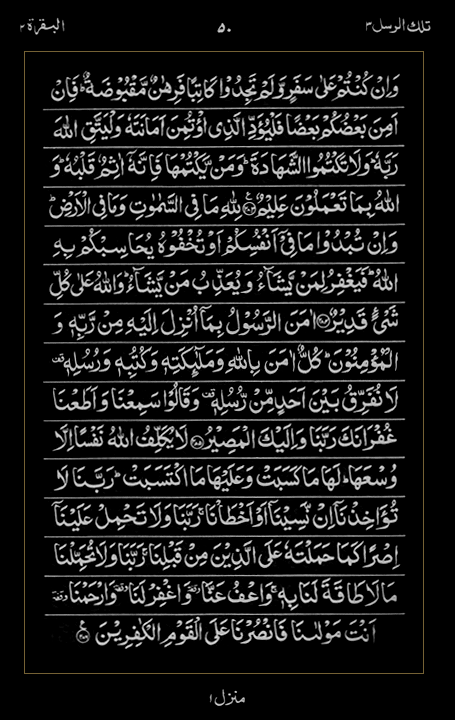 تلك الرسل ٣ ٥٠ البقرة ٢
وَاِنْ كُنْتُمْ عَلٰى سَفَرٍ وَّلَمْ تَجِدُوْا كَاتِبًا فَرِهٰنٌ مَّقْبُوْضَةٌ ؕ فَاِنْ
اَمِنَ بَعْضُكُمْ بَعْضًا فَلْيُؤَدِّ الَّذِى اؤْتُمِنَ اَمَانَتَهٗ وَلْيَتَّقِ اللّٰهَ
رَبَّهٗ ؕ وَلَا تَكْتُمُوا الشَّهَادَةَ ؕ وَمَنْ يَّكْتُمْهَا فَاِنَّهٗۤ اٰثِمٌ قَلْبُهٗ ؕ وَ
اللّٰهُ بِمَا تَعْمَلُوْنَ عَلِيْمٌ ﴿۲۸۳﴾ لِلّٰهِ مَا فِى السَّمٰوٰتِ وَمَا فِى الْاَرْضِ ؕ
وَاِنْ تُبْدُوْا مَا فِىْۤ اَنْفُسِكُمْ اَوْ تُخْفُوْهُ يُحَاسِبْكُمْ بِهِ
اللّٰهُ ؕ فَيَغْفِرُ لِمَنْ يَّشَآءُ وَيُعَذِّبُ مَنْ يَّشَآءُ ؕ وَاللّٰهُ عَلٰى كُلِّ
شَىْءٍ قَدِيْرٌ ﴿۲۸۴﴾ اٰمَنَ الرَّسُوْلُ بِمَاۤ اُنْزِلَ اِلَيْهِ مِنْ رَّبِّهٖ وَ
الْمُؤْمِنُوْنَ ؕ كُلٌّ اٰمَنَ بِاللّٰهِ وَمَلٰٓئِكَتِهٖ وَكُتُبِهٖ وَرُسُلِهٖ قف
لَا نُفَرِّقُ بَيْنَ اَحَدٍ مِّنْ رُّسُلِهٖ قف وَقَالُوْا سَمِعْنَا وَاَطَعْنَا
غُفْرَانَكَ رَبَّنَا وَاِلَيْكَ الْمَصِيْرُ ﴿۲۸۵﴾ لَا يُكَلِّفُ اللّٰهُ نَفْسًا اِلَّا
وُسْعَهَا ؕ لَهَا مَا كَسَبَتْ وَعَلَيْهَا مَا اكْتَسَبَتْ ؕ رَبَّنَا لَا
تُؤَاخِذْنَاۤ اِنْ نَّسِيْنَاۤ اَوْ اَخْطَاْنَا ۚ رَبَّنَا وَلَا تَحْمِلْ عَلَيْنَاۤ
اِصْرًا كَمَا حَمَلْتَهٗ عَلَى الَّذِيْنَ مِنْ قَبْلِنَا ۚ رَبَّنَا وَلَا تُحَمِّلْنَا
مَا لَا طَاقَةَ لَنَا بِهٖ ۚ وَاعْفُ عَنَّا وقفة وَاغْفِرْ لَنَا وقفة وَارْحَمْنَا وقفة
اَنْتَ مَوْلٰىنَا فَانْصُرْنَا عَلَى الْقَوْمِ الْكٰفِرِيْنَ ﴿۲۸۶﴾
منزل ۱